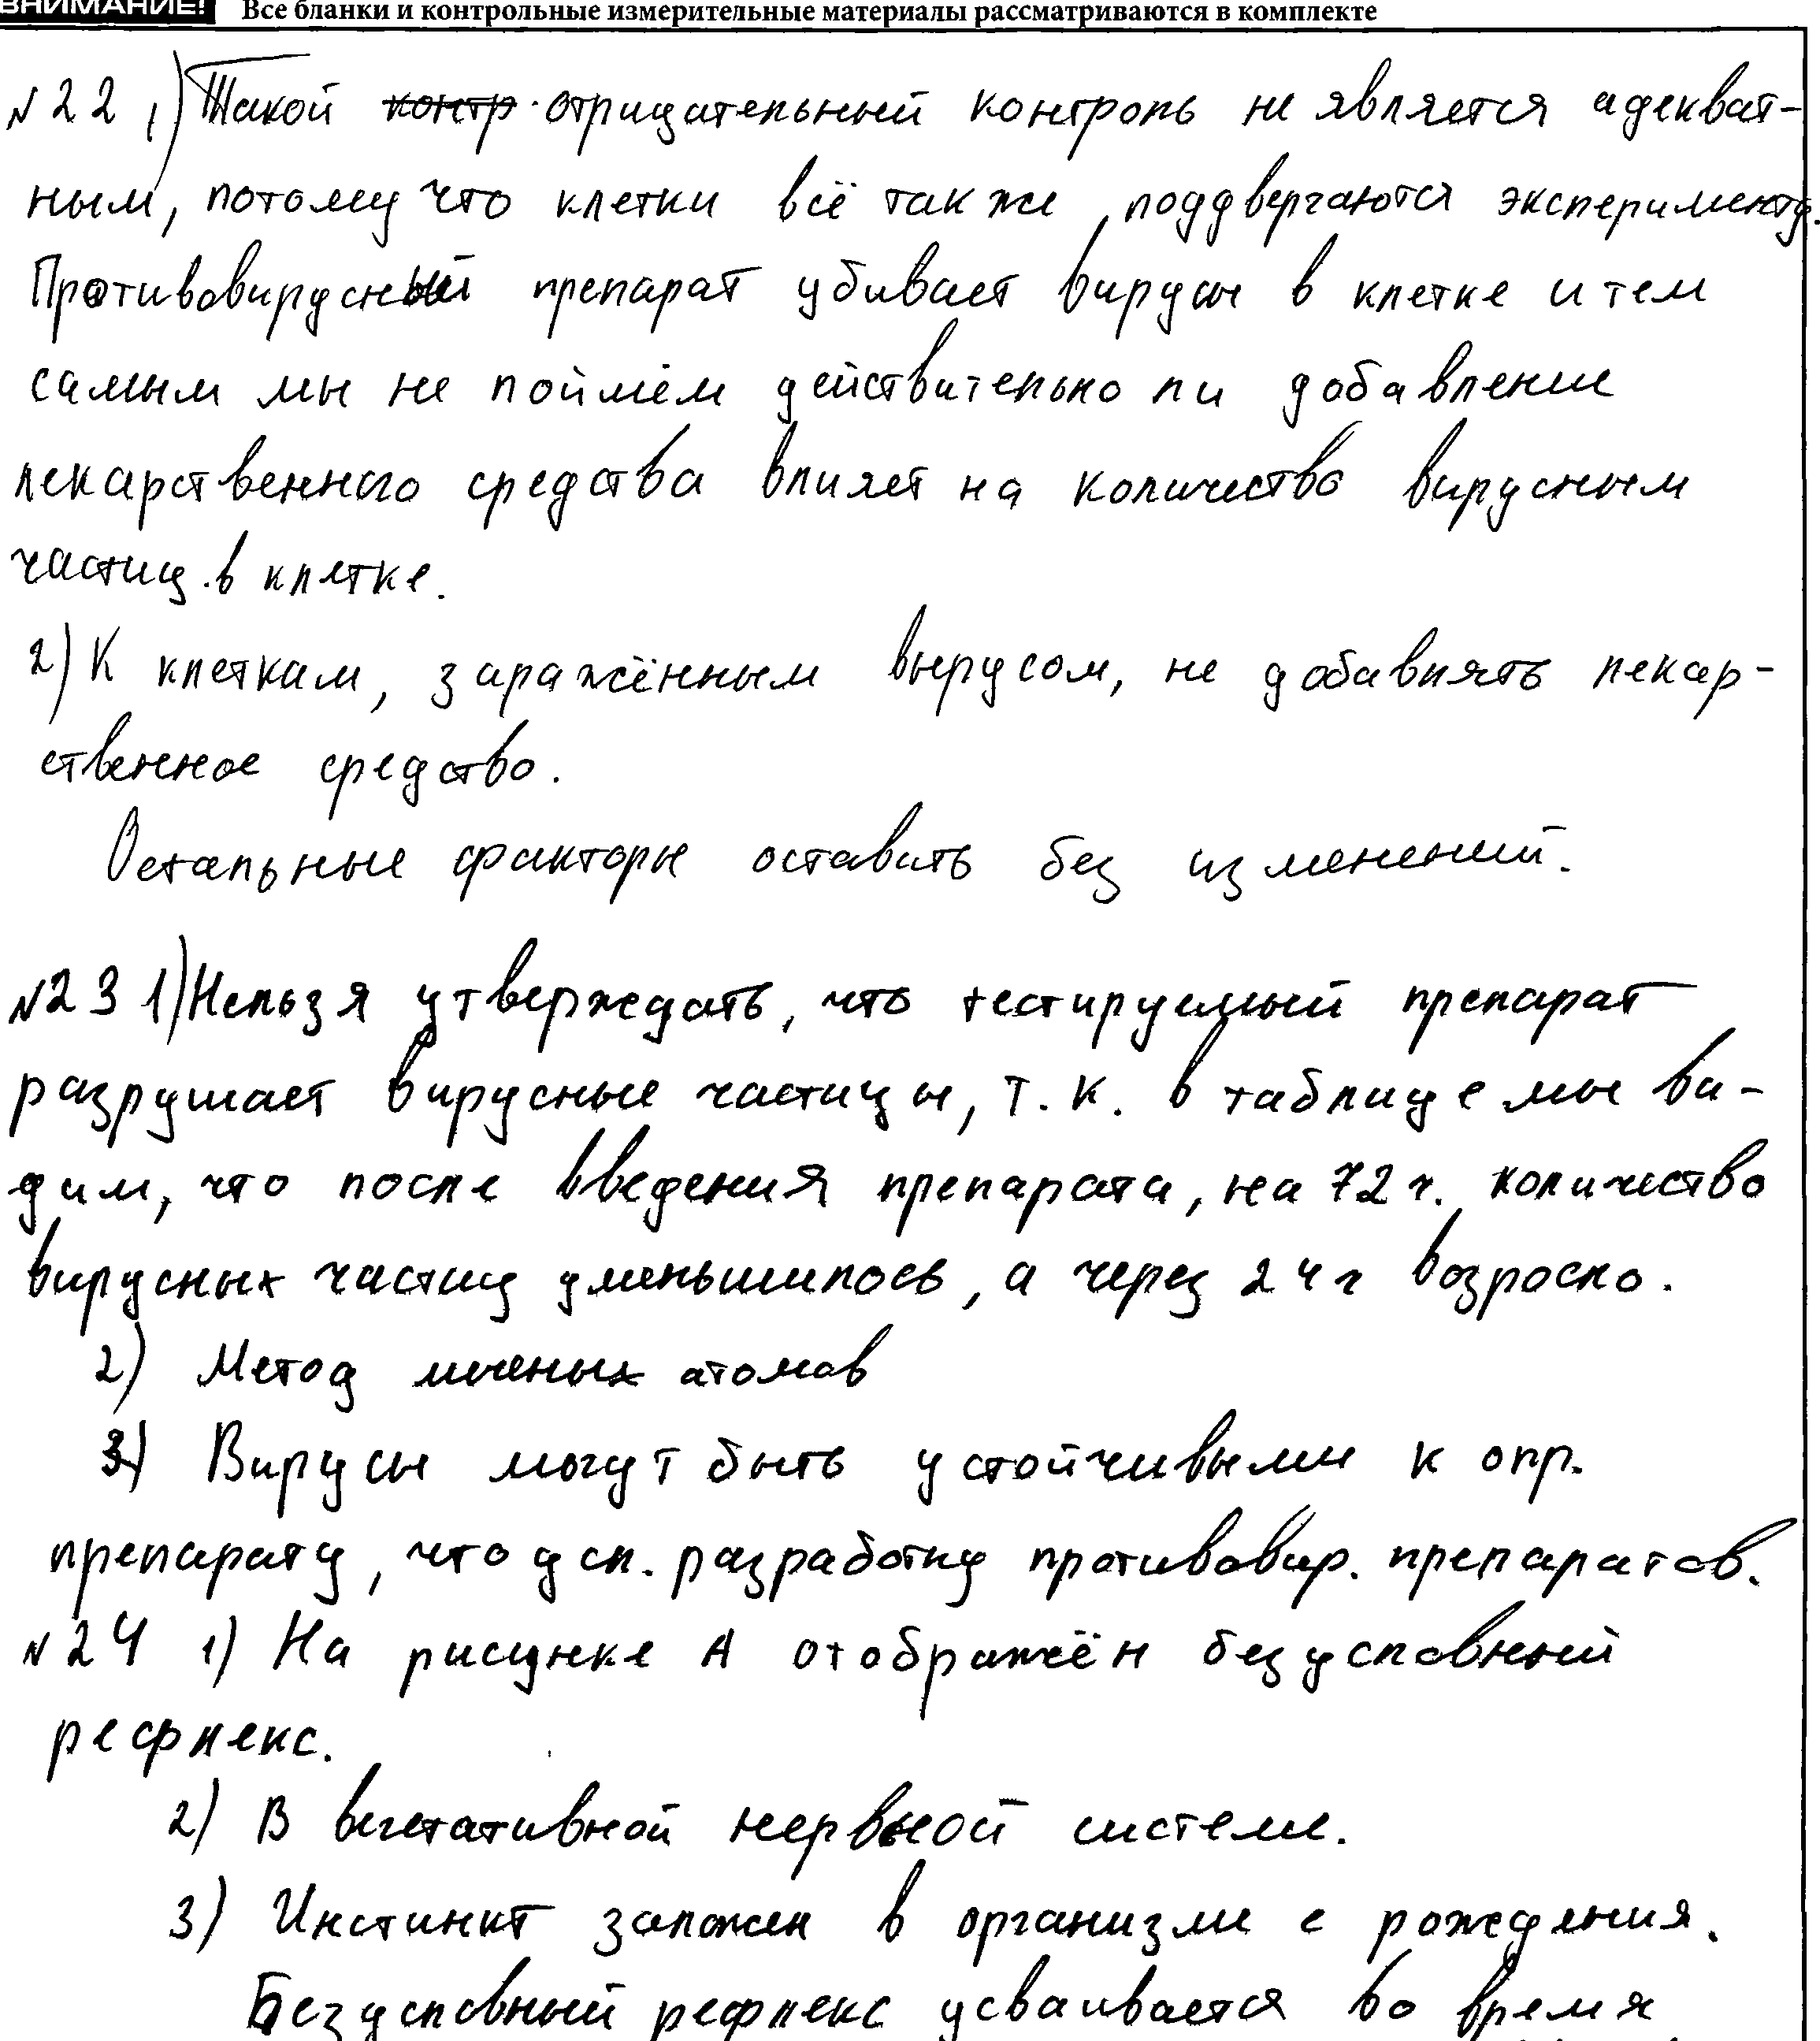 ВНИМАНИЕ! Все бланки и контрольные измерительные материалы рассматриваются в комплекте
№22 1) Такой контр отрицательный контроль не является адекват-
ным, потому что клетки всё также поддвергаются эксперименту.
Противовирусный препарат убивает вирусы в клетке и тем
самым мы не поймём действительно ли добавление
лекарственного средства влияет на количество вирусным
частиц в клетке.
2) К клеткам, заражённым вырусом, не добавлять лекар-
ственное средство.
Остальные факторы оставить без изменений.
№23 1) Нельзя утверждать, что тестируемый препарат
разрушает вирусные частицы, т.к. в таблице мы ви-
дим, что после введения препарата, на 72 ч. количество
вирусных частиц уменьшилось, а через 24 ч возросло.
2) Метод меченых атомов
3) Вирусы могут быть устойчивыми к опр.
препарату, что усл. разработку противовир. препаратов.
№24 1) На рисунке А отображён безусловный
рефлекс.
2) В вегетативной нервной системе.
3) Инстинкт заложен в организме с рождения.
Безусловный рефлекс усваивается во время